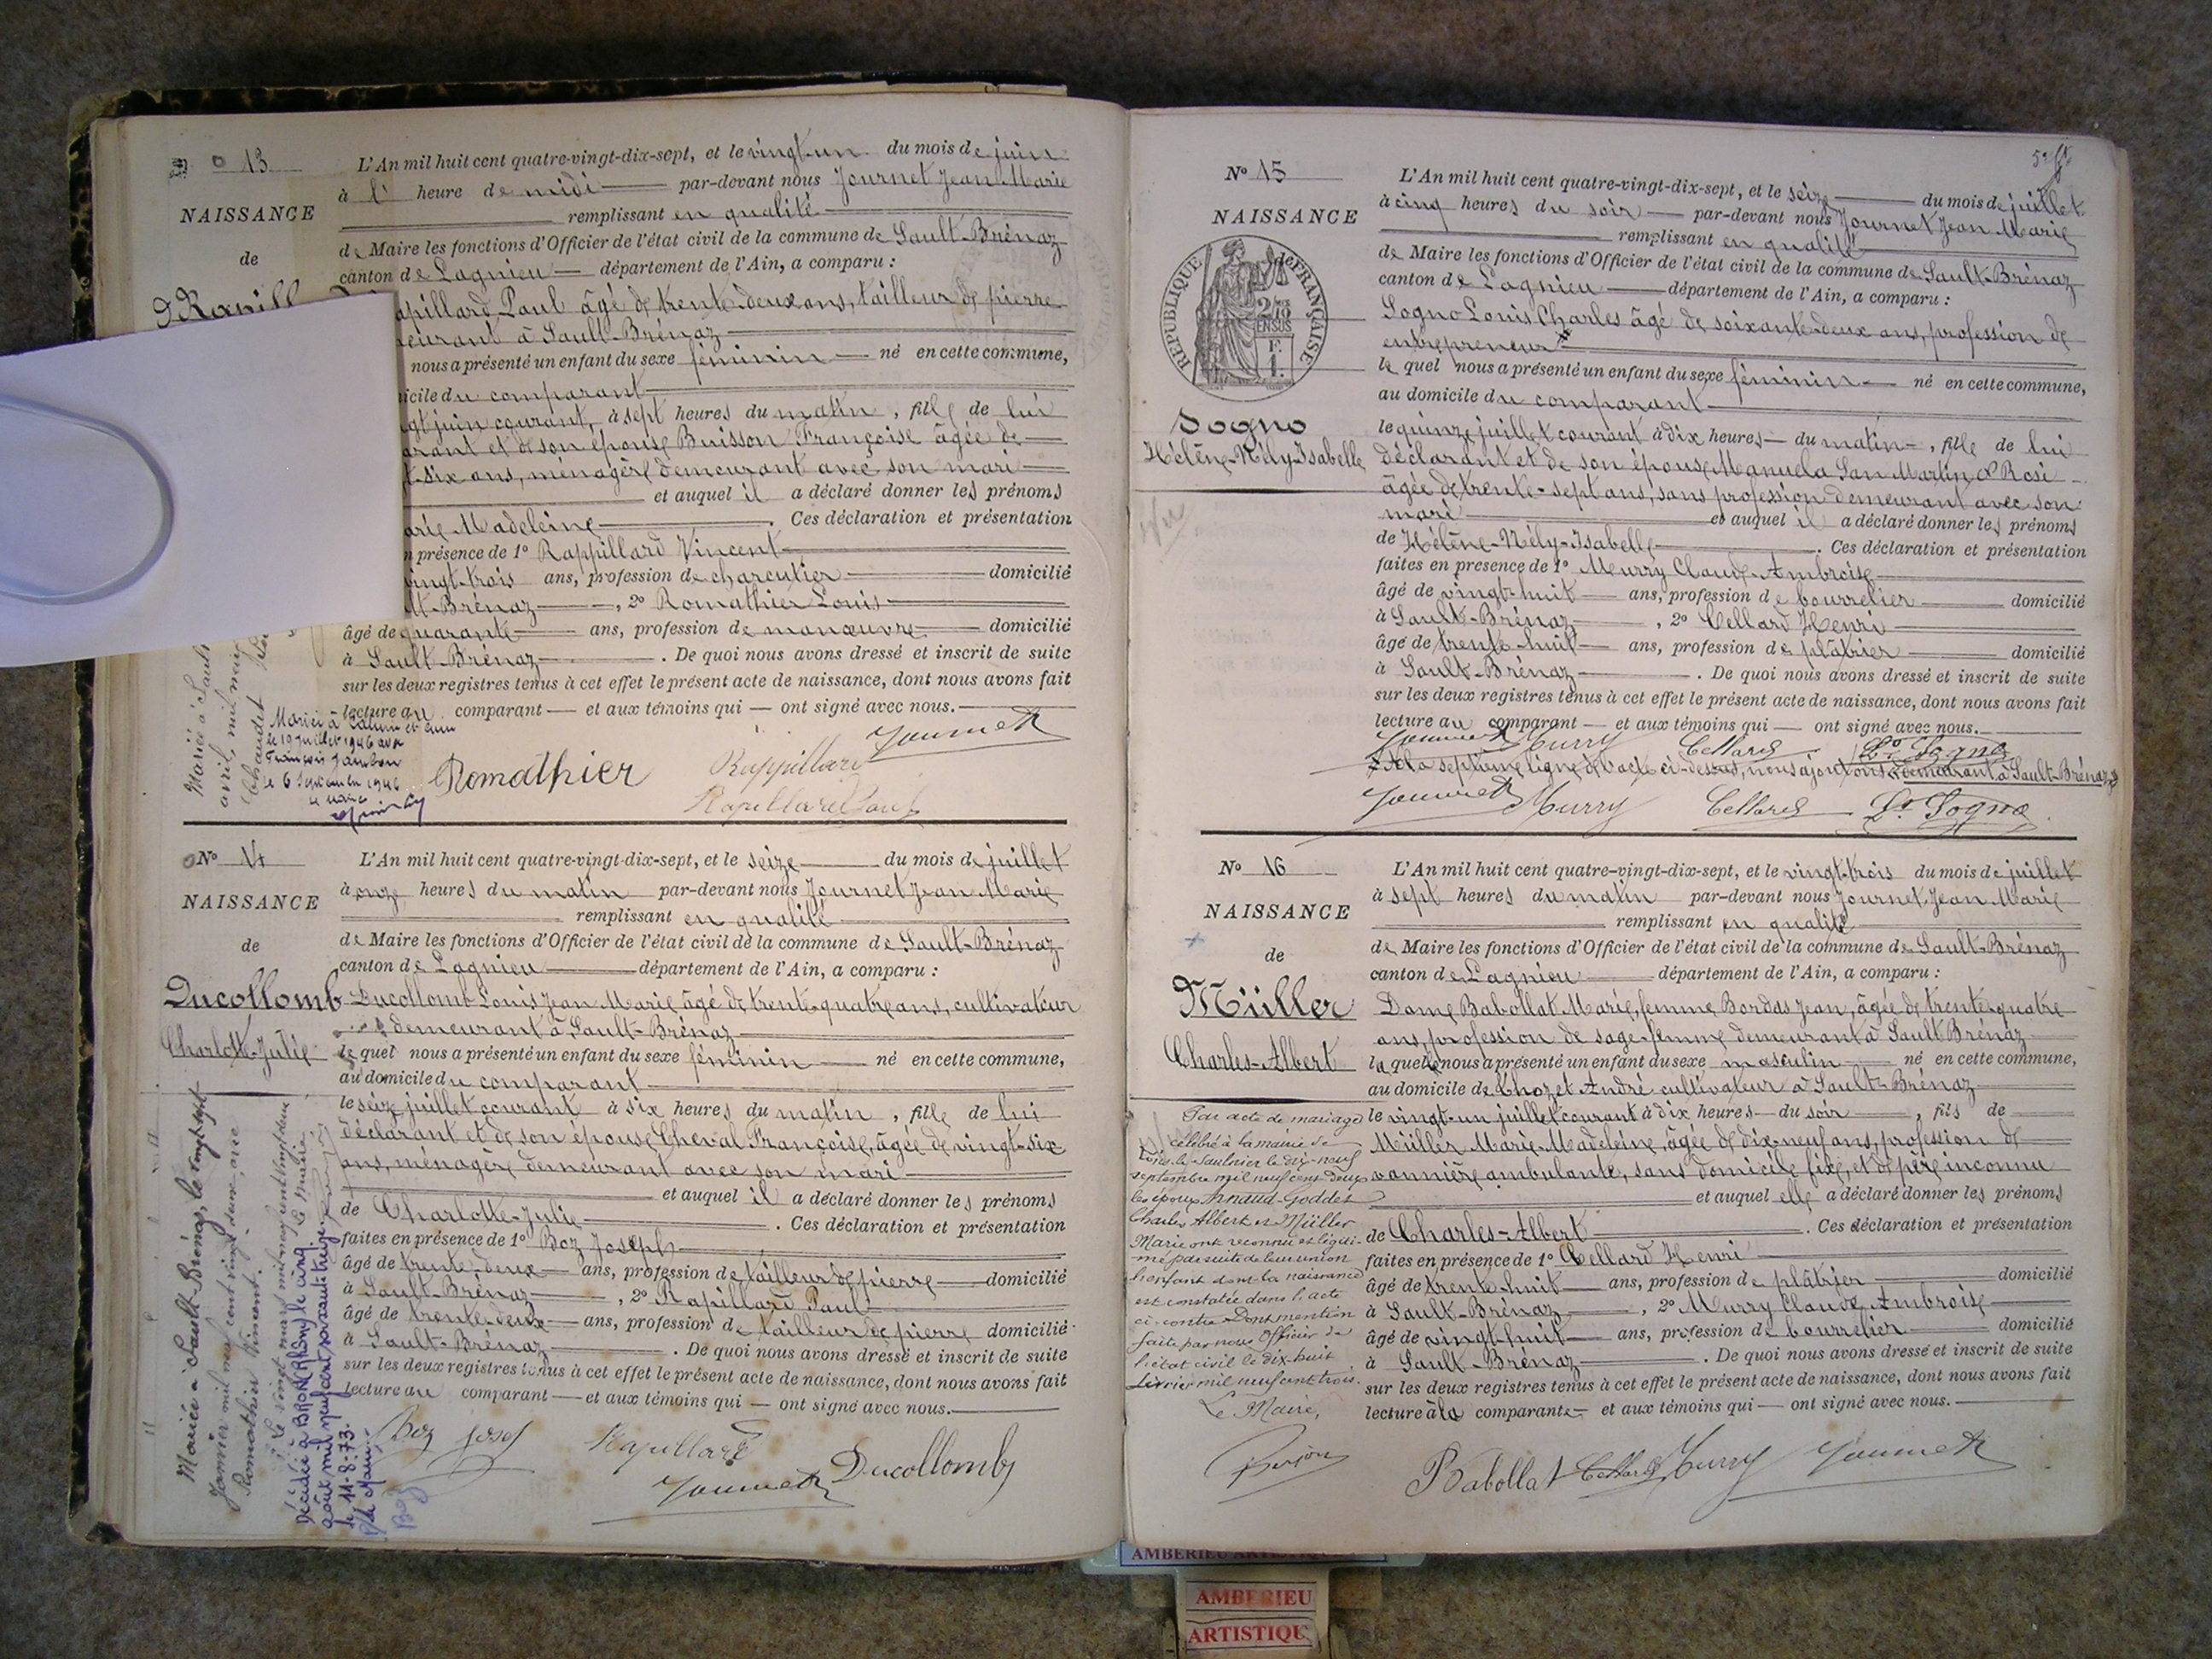 o 13
NAISSANCE
de
L'An mil huit cent quatre-vingt-dix-sept, et le vingt-un du mois de juin
à l' heure de midi par-devant nous Journet Jean Marie
remplissant en qualité
de Maire les fonctions d'Officier de l'état civil de la commune de Sault-Brénaz
canton de Lagnieu département de l'Ain, a comparu :
apillard Paul âgé de trente-deux ans, tailleur de pierre
eurant à Sault-Brénaz
nous a présenté un enfant du sexe féminin né en cette commune,
icile du comparant
gt juin courant, à sept heures du matin, fille de lui
arant et de son épouse Buisson Françoise âgée de
t-six ans, ménagère demeurant avec son mari
et auquel il a déclaré donner les prénoms
arie Madeleine. Ces déclaration et présentation
n présence de 1º Rappillard Vincent
vingt-trois ans, profession de charcutier domicilié
lt-Brénaz, 2º Romathier Louis
âgé de quarante ans, profession de manœuvre domicilié
à Sault-Brénaz. De quoi nous avons dressé et inscrit de suite
sur les deux registres tenus à cet effet le présent acte de naissance, dont nous avons fait
lecture au comparant et aux témoins qui ont signé avec nous.
Mariée à Sault
avril mil neuf
Chaudet
le 19 juillet 1946 avec
François Jambon
le 6 Septembre 1946
Journet
Romathier
Rappillard
Rapillard Paul
Nº 14
NAISSANCE
de
Ducollomb
Charlotte-Julie
L'An mil huit cent quatre-vingt-dix-sept, et le seize du mois de juillet
à onze heures du matin par-devant nous Journet Jean Marie
remplissant en qualité
de Maire les fonctions d'Officier de l'état civil de la commune de Sault-Brénaz
canton de Lagnieu département de l'Ain, a comparu :
Ducollomb Louis Jean Marie, âgé de trente-quatre ans, cultivateur
demeurant à Sault-Brénaz
le quel nous a présenté un enfant du sexe féminin né en cette commune,
au domicile du comparant
le seize juillet courant à six heures du matin, fille de lui
déclarant et de son épouse Cheval Françoise, âgée de vingt-six
ans, ménagère demeurant avec son mari
et auquel il a déclaré donner les prénoms
de Charlotte-Julie. Ces déclaration et présentation
faites en présence de 1º Boz Joseph
âgé de trente-deux ans, profession de tailleur de pierre domicilié
à Sault-Brénaz, 2º Rapillard Paul
âgé de trente-deux ans, profession de tailleur de pierre domicilié
à Sault-Brénaz. De quoi nous avons dressé et inscrit de suite
sur les deux registres tenus à cet effet le présent acte de naissance, dont nous avons fait
lecture au comparant et aux témoins qui ont signé avec nous.
Mariée à Sault-Brénaz, le vingt-sept
Janvier mil neuf cent vingt deux, avec
Romathier Vincent.
Le vingt mars mil neuf cent vingt deux
Le Maire
Décédée à BRON (Rhône) le cinq
août mil neuf cent soixante treize
le 11-8-73.
P/le Maire
Boz josef
Rapillard
Journet
Ducollomb
Nº 15
NAISSANCE
REPUBLIQUE FRANÇAISE
2/10
EN SUS
F.
1.
Sogno
Hélène-Nély-Isabelle
L'An mil huit cent quatre-vingt-dix-sept, et le seize du mois de juillet
à cinq heures du soir par-devant nous Journet Jean Marie
remplissant en qualité
de Maire les fonctions d'Officier de l'état civil de la commune de Sault-Brénaz
canton de Lagnieu département de l'Ain, a comparu :
Sogno Louis Charles âgé de soixante-deux ans, profession de
entrepreneur
le quel nous a présenté un enfant du sexe féminin né en cette commune,
au domicile du comparant
le quinze juillet courant à dix heures du matin, fille de lui
déclarant et de son épouse Manuela San Martin &Rosi
âgée de trente-sept ans, sans profession demeurant avec son
mari et auquel il a déclaré donner les prénoms
de Hélène-Nély-Isabelle. Ces déclaration et présentation
faites en presence de 1º Murry Claude-Ambroise
âgé de vingt-huit ans, profession de bourrelier domicilié
à Sault-Brénaz, 2º Cellard Henri
âgé de trente-huit ans, profession de plâtrier domicilié
à Sault-Brénaz. De quoi nous avons dressé et inscrit de suite
sur les deux registres tenus à cet effet le présent acte de naissance, dont nous avons fait
lecture au comparant et aux témoins qui ont signé avec nous.
Journet Murry Cellard Ls Sogno
à la septième ligne de l'acte ci-dessus, nous ajoutons demeurant à Sault-Brénaz
Journet Murry Cellard Ls Sogno
Nº 16
NAISSANCE
de
Müller
Charles-Albert
L'An mil huit cent quatre-vingt-dix-sept, et le vingt-trois du mois de juillet
à sept heures du matin par-devant nous Journet Jean Marie
remplissant en qualité
de Maire les fonctions d'Officier de l'état civil de la commune de Sault-Brénaz
canton de Lagnieu département de l'Ain, a comparu :
Dame Babollat Marie, femme Bordas Jean, âgée de trente-quatre
ans, profession de sage-femme demeurant à Sault Brénaz
la quelle nous a présenté un enfant du sexe masculin né en cette commune,
au domicile de Chozet André cultivateur à Sault-Brénaz
le vingt-un juillet courant à dix heures du soir, fils de
Müller Marie-Madeleine, âgée de dix-neuf ans, profession de
vannière ambulante, sans domicile fixe, et de père inconnu
et auquel elle a déclaré donner les prénoms
de Charles-Albert. Ces déclaration et présentation
faites en présence de 1º Cellard Henri
âgé de trente-huit ans, profession de plâtrier domicilié
à Sault-Brénaz, 2º Murry Claude Ambroise
âgé de vingt-huit ans, profession de bourrelier domicilié
à Sault-Brénaz. De quoi nous avons dressé et inscrit de suite
sur les deux registres tenus à cet effet le présent acte de naissance, dont nous avons fait
lecture à la comparante et aux témoins qui ont signé avec nous.
Par acte de mariage
célébré à la mairie de
Lons-le-Saulnier le dix-neuf
septembre mil neuf cent deux
les époux Arnaud-Goddet
Charles Albert et Müller
Marie ont reconnu et légiti-
mé par suite de leur union
l'enfant dont la naissance
est constatée dans l'acte
ci-contre Dont mention
faite par nous Officier de
l'état civil le dix-huit
février mil neuf cent trois.
Le Maire,
Babollat Cellard Murry Journet
AMBERIEU ARTISTIQUE
AMBERIEU
ARTISTIQU